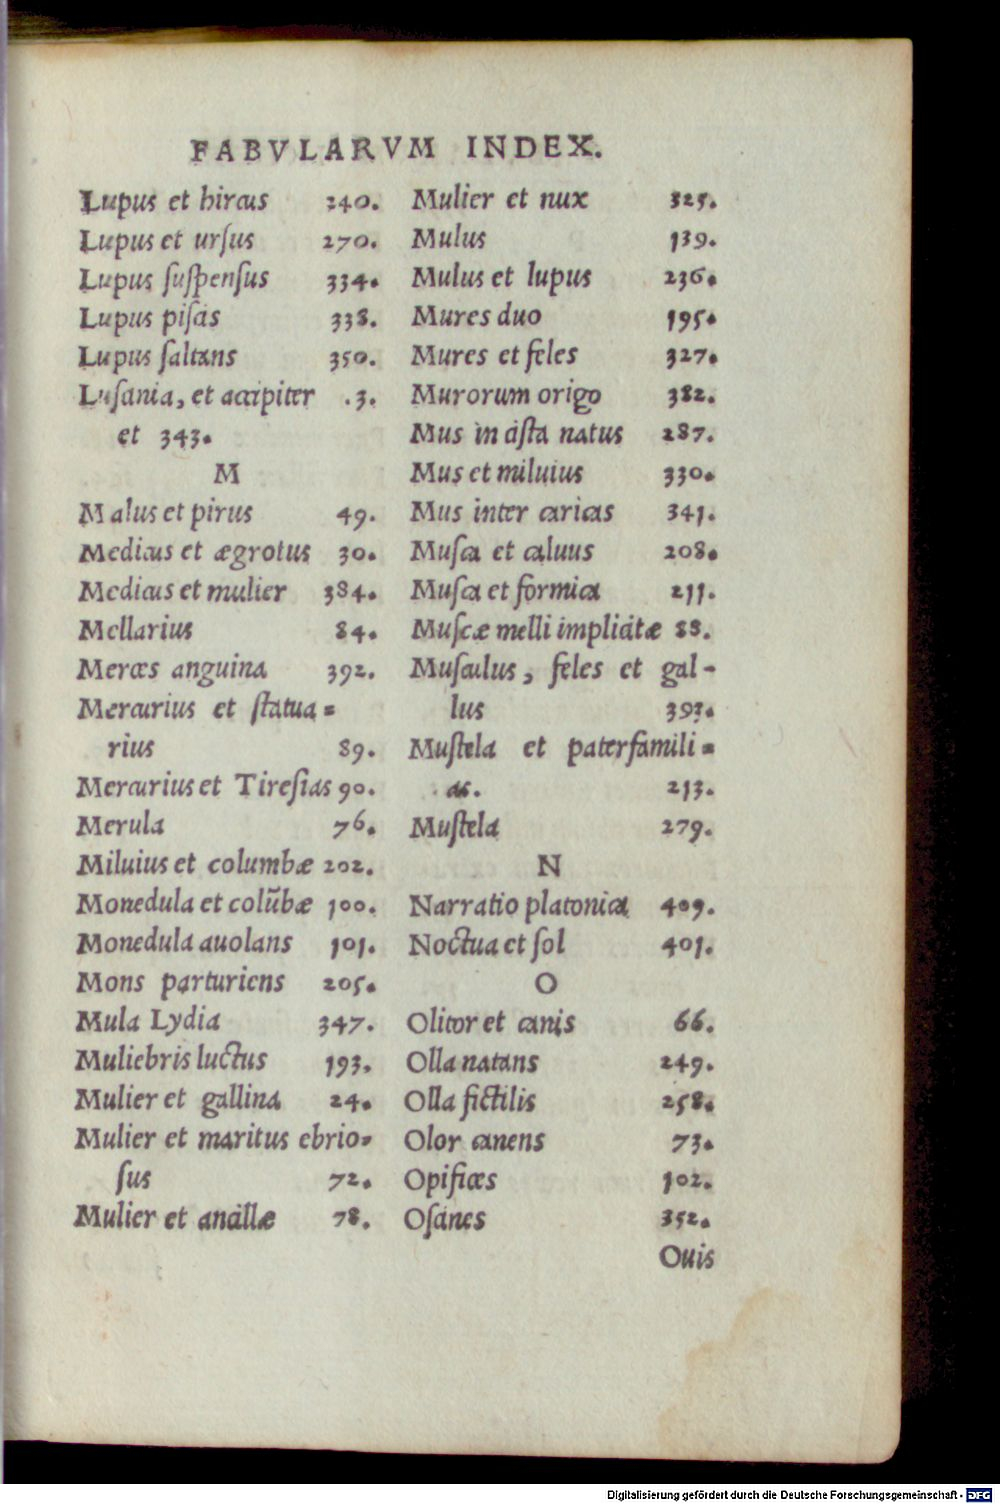 FABVLARVM INDEX.
Lupus et hircus 240.
Lupus et urſus 270.
Lupus ſuſpenſus 334.
Lupus piſcis 338.
Lupus ſaltans 350.
Luſcinia, et accipiter .3.
et 343.
M
Malus et pirus 49.
Medicus et ægrotus 30.
Medicus et mulier 384.
Mellarius 84.
Merces anguina 392.
Mercurius et ſtatua=
rius 89.
Mercurius et Tireſias 90.
Merula 76.
Miluius et columbæ 202.
Monedula et colūbæ 100.
Monedula auolans 101.
Mons parturiens 205.
Mula Lydia 347.
Muliebris luctus 193.
Mulier et gallina 24.
Mulier et maritus ebrio=
ſus 72.
Mulier et ancillæ 78.
Mulier et nux 325.
Mulus 139.
Mulus et lupus 236.
Mures duo 195.
Mures et feles 327.
Murorum origo 382.
Mus in ciſta natus 287.
Mus et miluius 330.
Mus inter caricas 341.
Muſca et caluus 208.
Muſca et formica 211.
Muſcæ melli implicitæ 88.
Muſculus, feles et gal-
lus 393.
Muſtela et paterfamili=
as. 213.
Muſtela 279.
N
Narratio platonica 409.
Noctua et ſol 401.
O
Olitor et canis 66.
Olla natans 249.
Olla fictilis 258.
Olor canens 73.
Opifices 102.
Oſcines 352.
Ouis
Digitalisierung gefördert durch die Deutsche Forschungsgemeinschaft - DFG